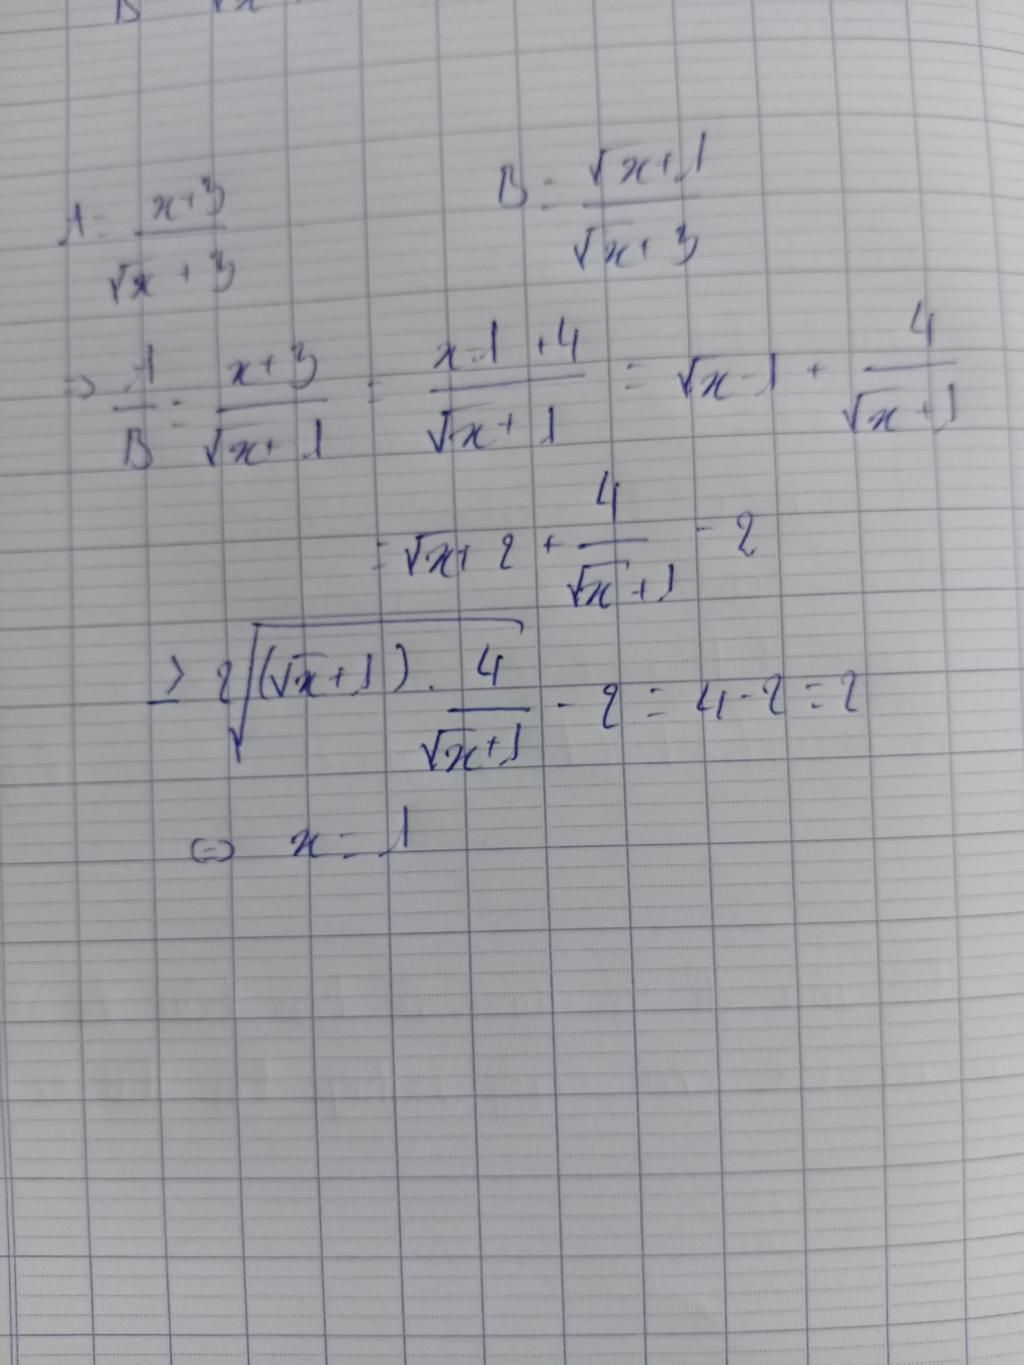 B √x
A = x+3 / √x + 3 B = √x+1 / √x+3
=> A/B = x+3 / √x+1 = x-1+4 / √x+1 = √x-1 + 4 / √x+1
= √x+2 + 4 / √x+1 - 2
≥ 2√((√x+1) . 4 / √x+1) - 2 = 4-2 = 2
<=> x = 1